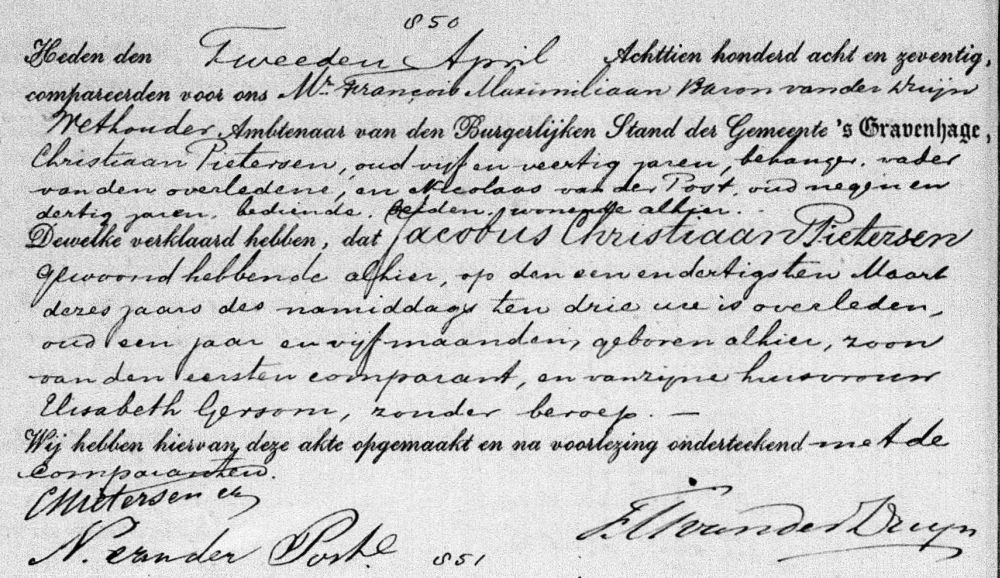 850
Heden den Tweeden April Achttien honderd acht en zeventig,
compareerden voor ons Mr. François Maximiliaan Baron van der Duijn
Wethouder Ambtenaar van den Burgerlijken Stand der Gemeente 's Gravenhage,
Christiaan Pietersen, oud vijf en veertig jaren, behanger, vader
van den overledene, en Nicolaas van der Post, oud negen en
dertig jaren, bediende, beiden wonende alhier.
Dewelke verklaard hebben, dat Jacobus Christiaan Pietersen
gewoond hebbende alhier, op den een en dertigsten Maart
dezes jaars des namiddags ten drie ure is overleden,
oud een jaar en vijf maanden, geboren alhier, zoon
van den eersten comparant, en van zijne huisvrouw
Elisabeth Gersom, zonder beroep. —
Wij hebben hiervan deze akte opgemaakt en na voorlezing onderteekend met de
comparanten.
C Pietersen
N. van der Post
F M van der Duijn
851